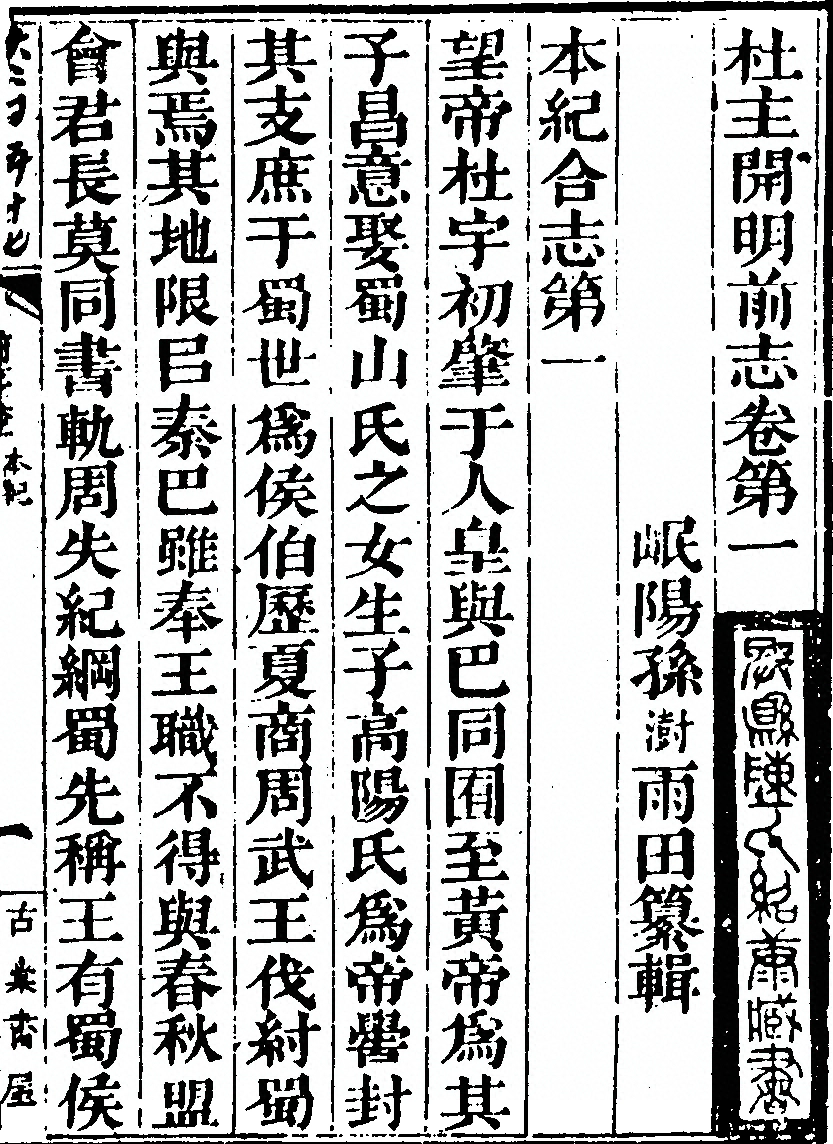 杜主開明前志卷第一
岷陽孫澍雨田纂輯
本紀合志第一
望帝杜宇初肇于人皇與巴同囿至黃帝爲其
子昌意娶蜀山氏之女生子高陽氏爲帝嚳封
其支庶于蜀世爲侯伯歷夏商周武王伐紂蜀
與焉其地限巳秦巴雖奉王職不得與春秋盟
會君長莫同書軌周失紀綱蜀先稱王有蜀侯
本紀
一
古棠書屋